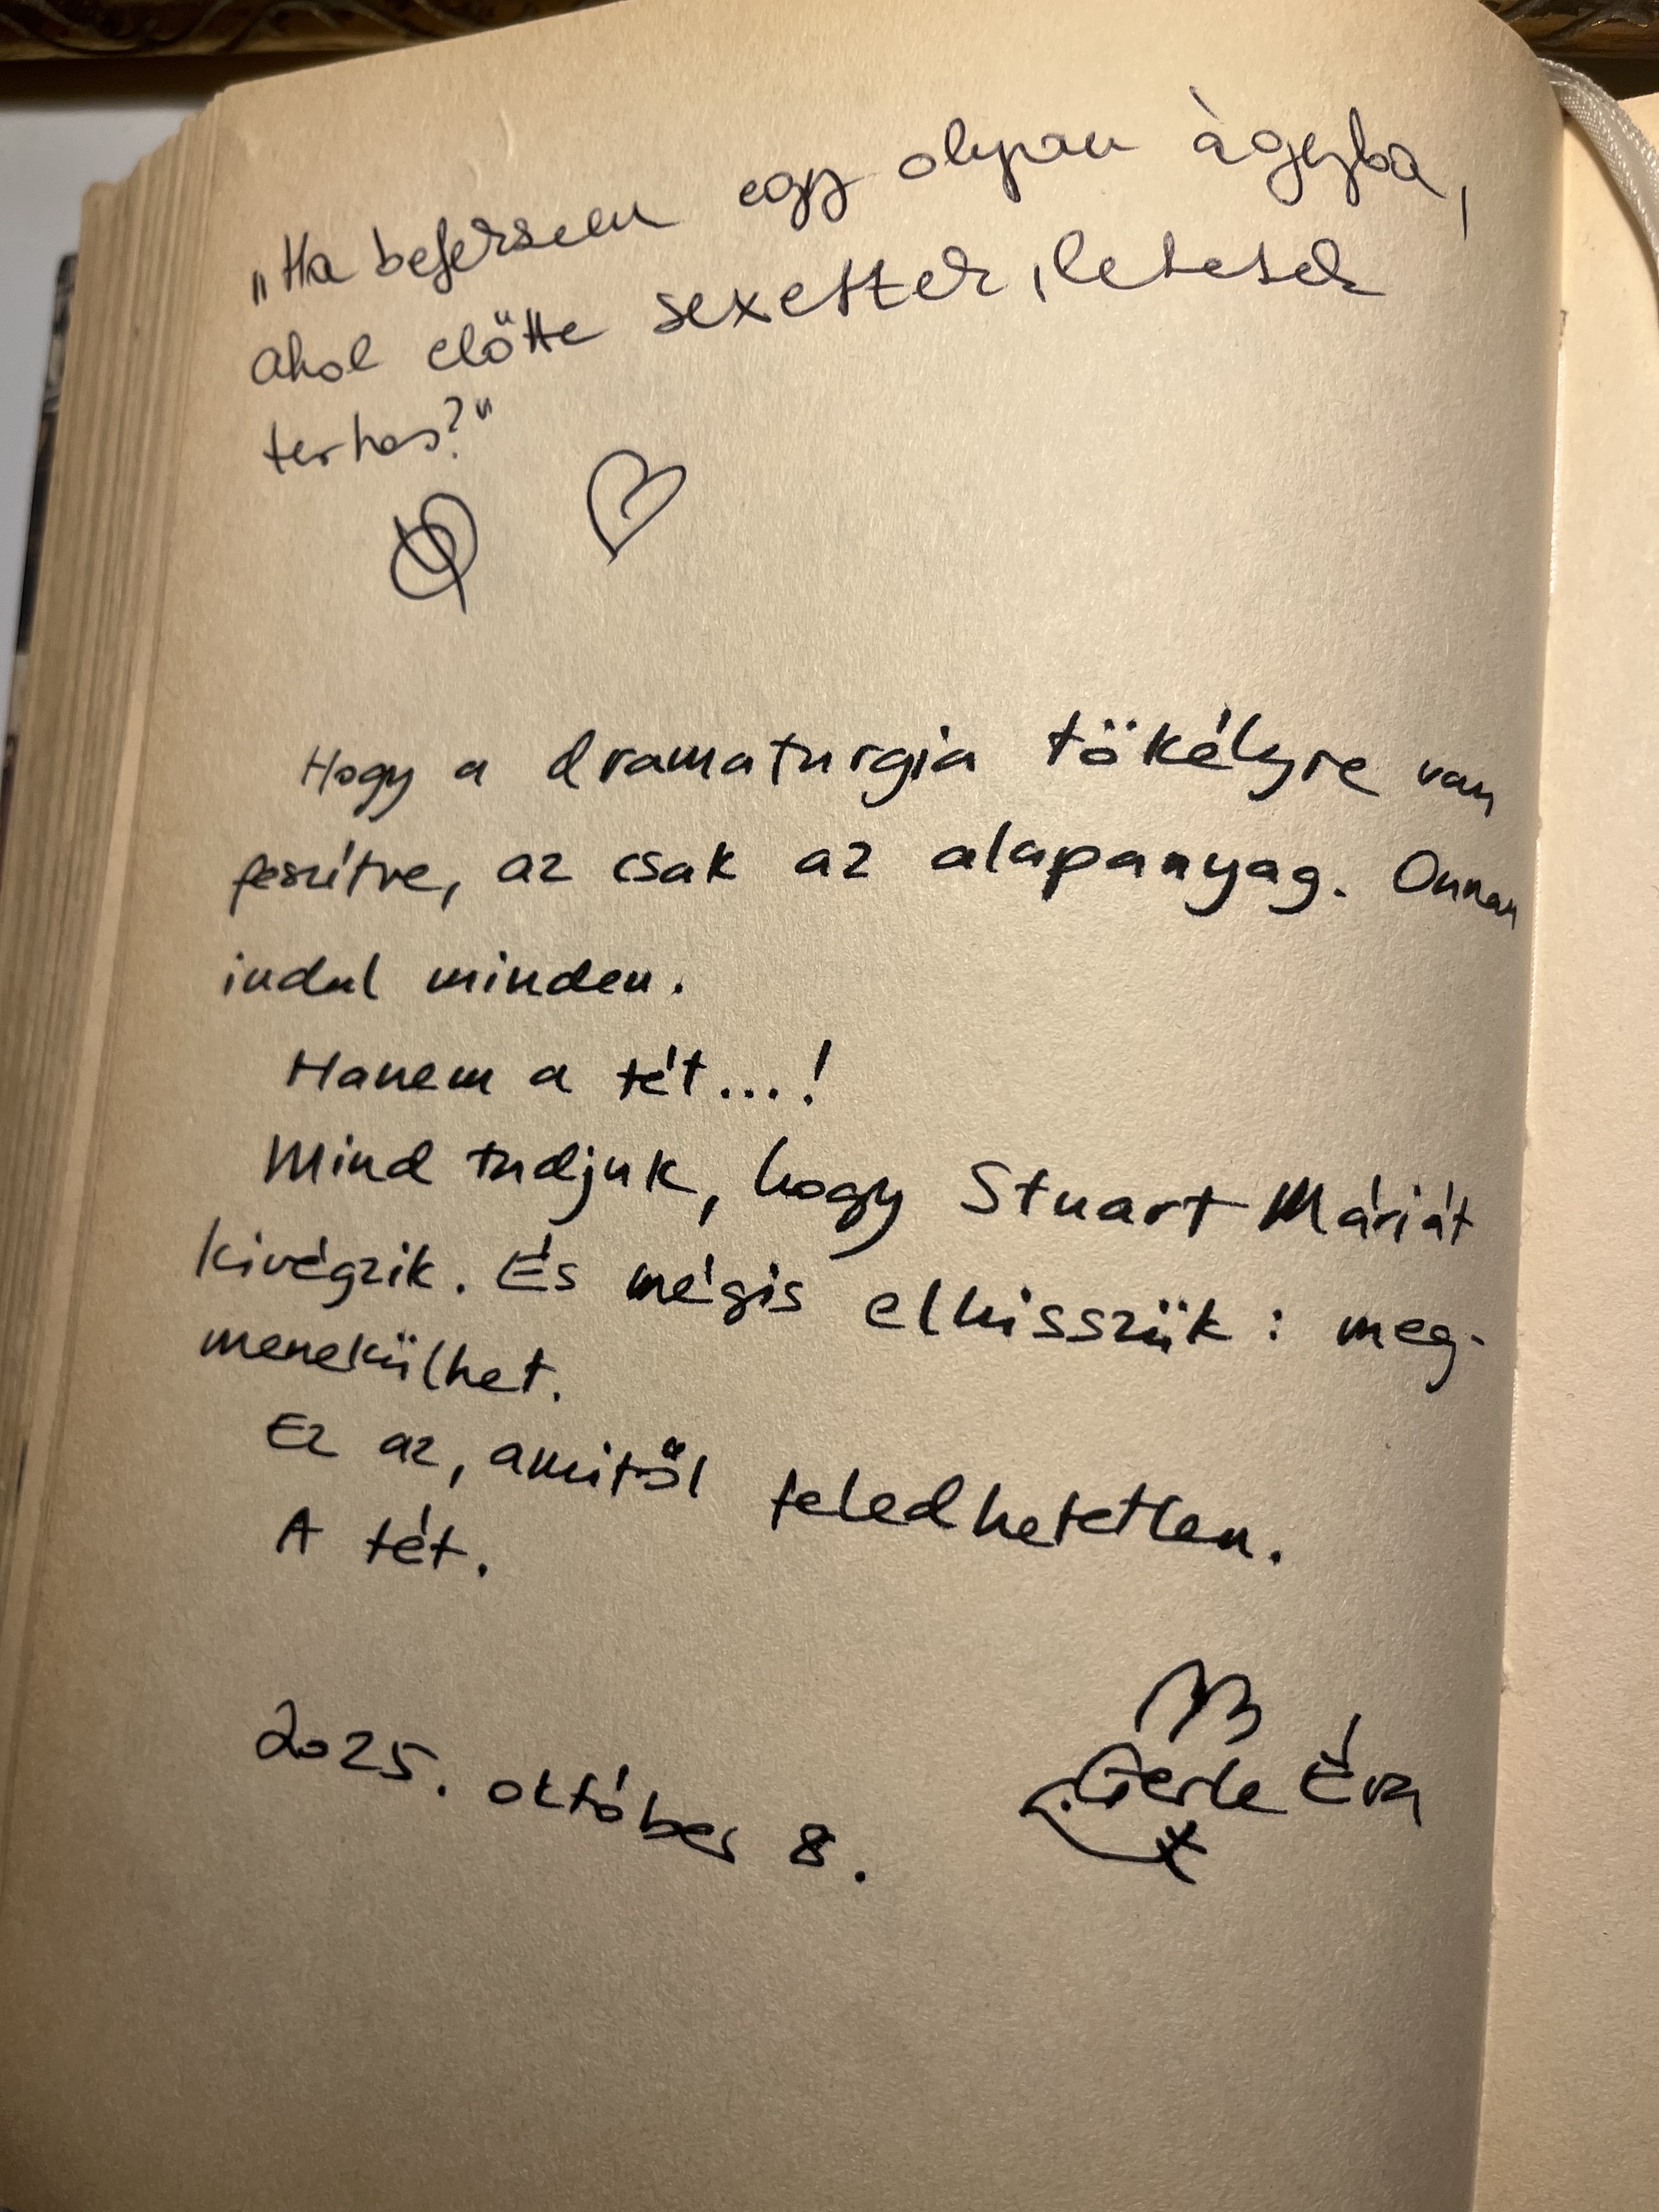 „Ha befekszem egy olyan ágyba,
ahol előtte sexeltek, lehetek
terhes?"
Hogy a dramaturgia tökélyre van
feszítve, az csak az alapanyag. Onnan
indul minden.
Hanem a tét...!
Mind tudjuk, hogy Stuart Máriát
kivégzik. És mégis elhisszük: meg-
menekülhet.
Ez az, amitől feledhetetlen.
A tét.
2025. október 8.
Gerle Éva